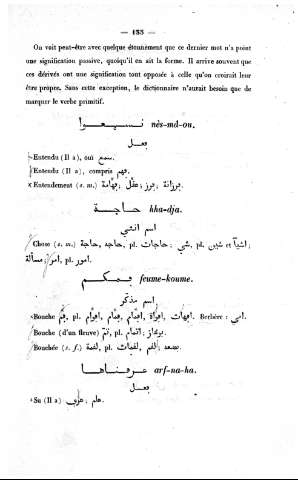 — 133 —
On voit peut-être avec quelque étonnement que ce dernier mot n'a point
une signification passive, quoiqu'il en ait la forme. Il arrive souvent que
ces dérivés ont une signification tout opposée à celle qu'on croirait leur
être propre. Sans cette exception, le dictionnaire n'aurait besoin que de
marquer le verbe primitif.
nès-mâ-ou.
فعل
Entendu (Il a), ouï سمع.
Entendu (Il a), compris فهم.
Entendement (s. m.) فهامة; عقل;
حاجة kha-dja.
اسم انثى
Chose (s. m.) حاجة, pl. حاجات; شي, pl. et اشيآ;
امر, pl. امور; مسألة.
فمكم feume-koume.
اسم مذكر
Bouche فم, pl. Berbère:
Bouche (d'un fleuve) pl.
Bouchée (s. f.) لقمة, pl.
عرفناها arf-na-ha.
فعل
Su (Il a) عرف; علم.